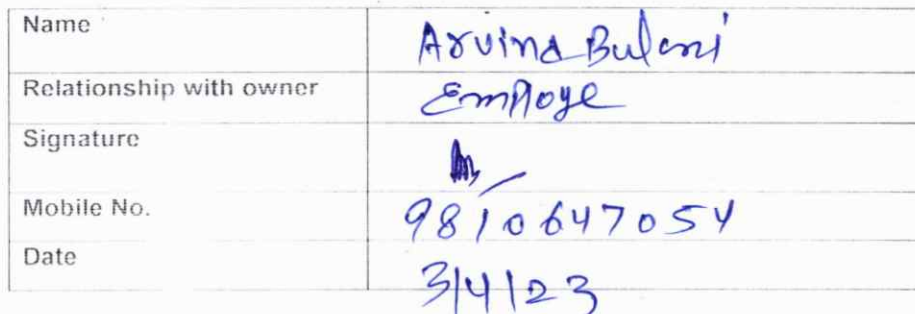 Name Arvind Bulani
Relationship with owner Employe
Signature
Mobile No. 9810647054
Date 3/4/23